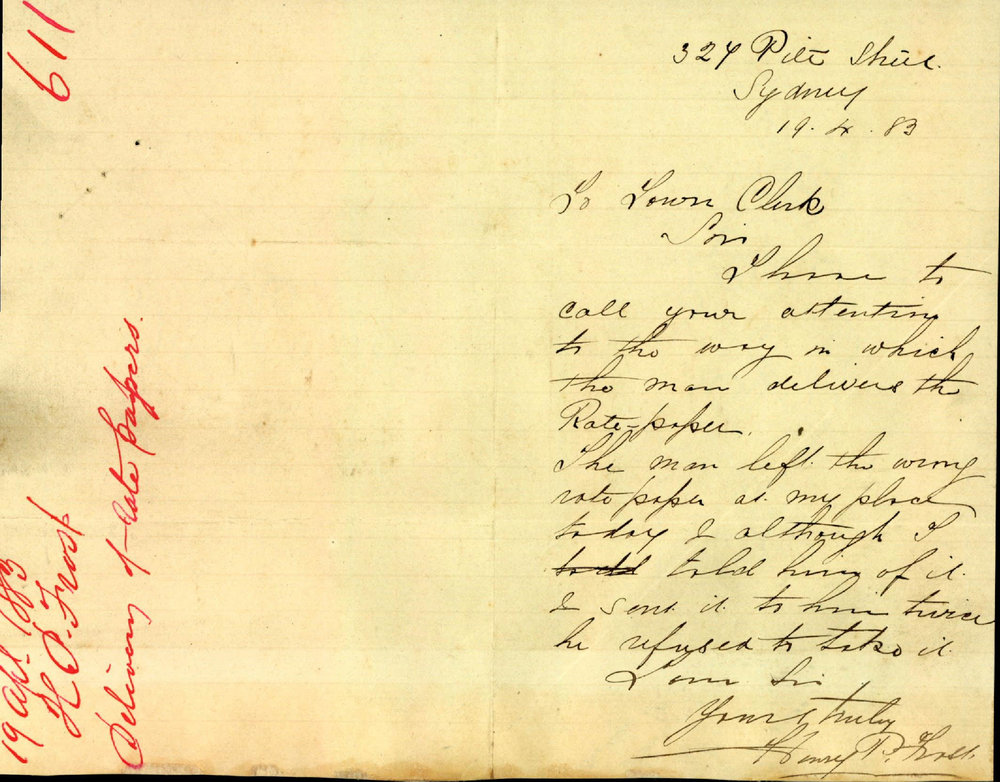 611
19 Apl. 1883
H. P. Frost
Delivery of rate papers.
324 Pitt Street.
Sydney
19. 4. 83
To Town Clerk
Sir
I have to
call your attention
to the way in which
the man delivers the
Rate-paper.
The man left the wrong
rate paper at my place
today & although I
told him of it
& sent it to him twice
he refused to take it
I am Sir
Yours truly
Henry P. Frost